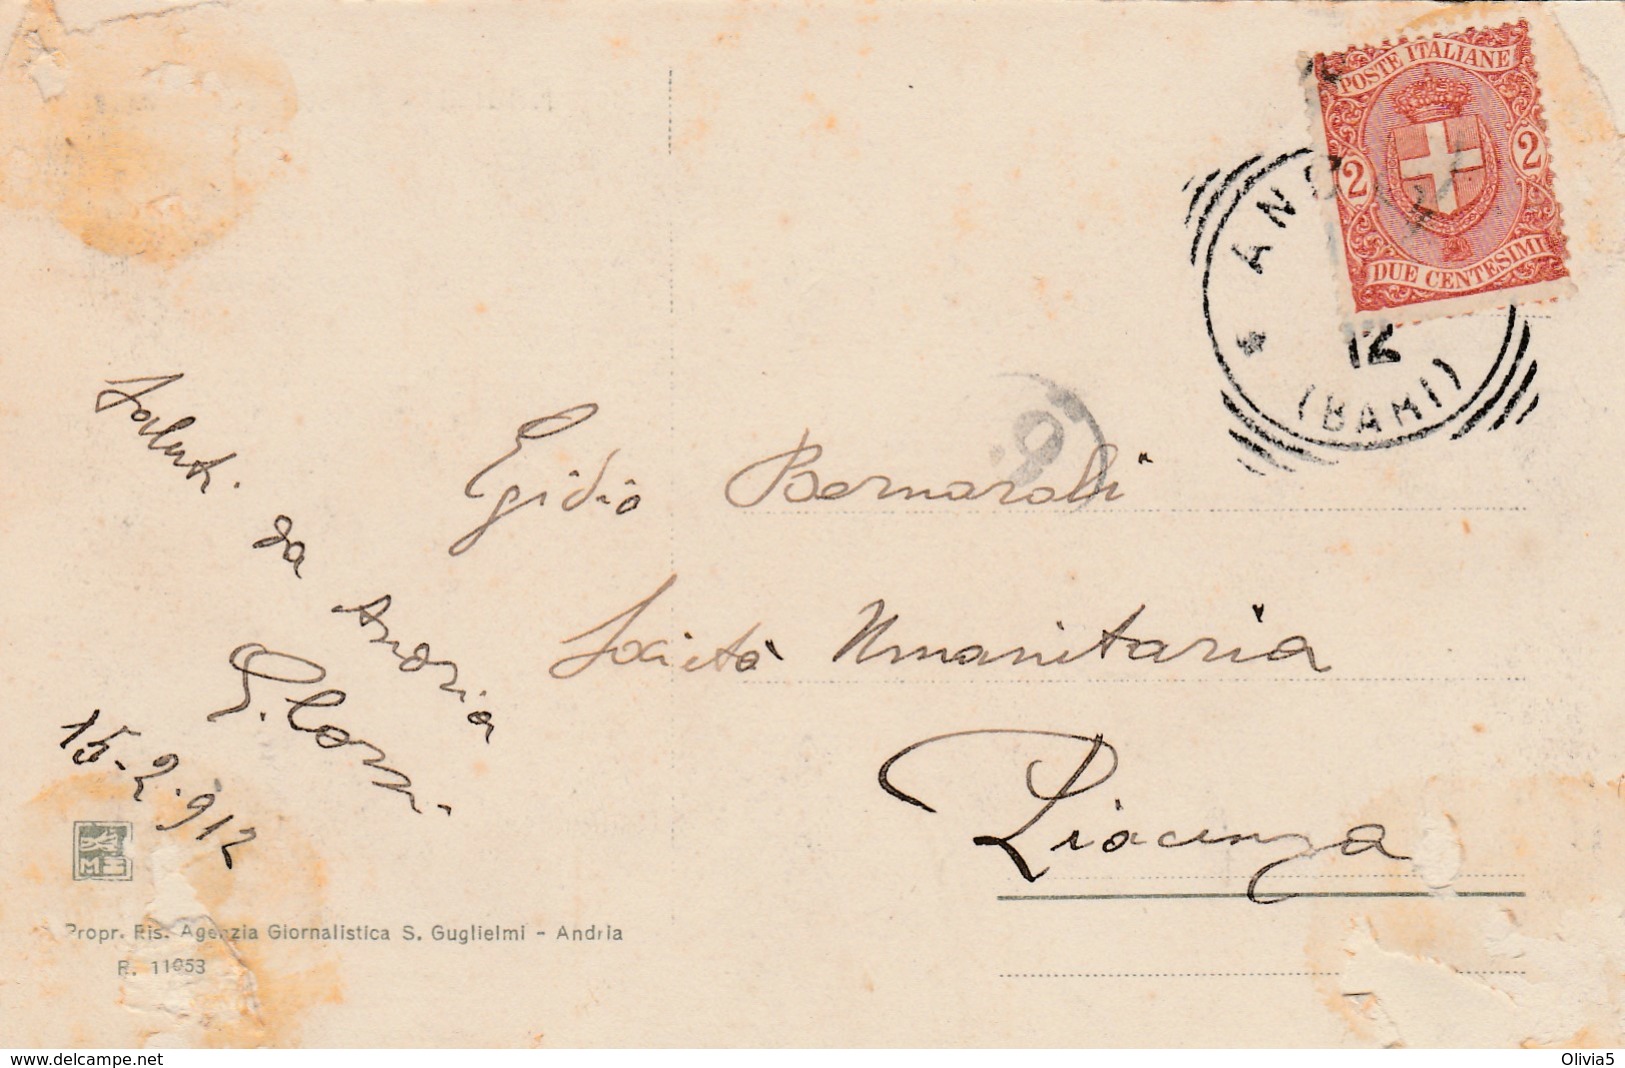 POSTE ITALIANE
2 2
DUE CENTESIMI
AND
12
(BARI)
9
Saluti
da Andria
15-2-912
Egidio Bernarobi
Società Umanitaria
Piacenza
ME
Propr. Ris. Agenzia Giornalistica S. Guglielmi - Andria
R. 11053
www.delcampe.net
Olivia5